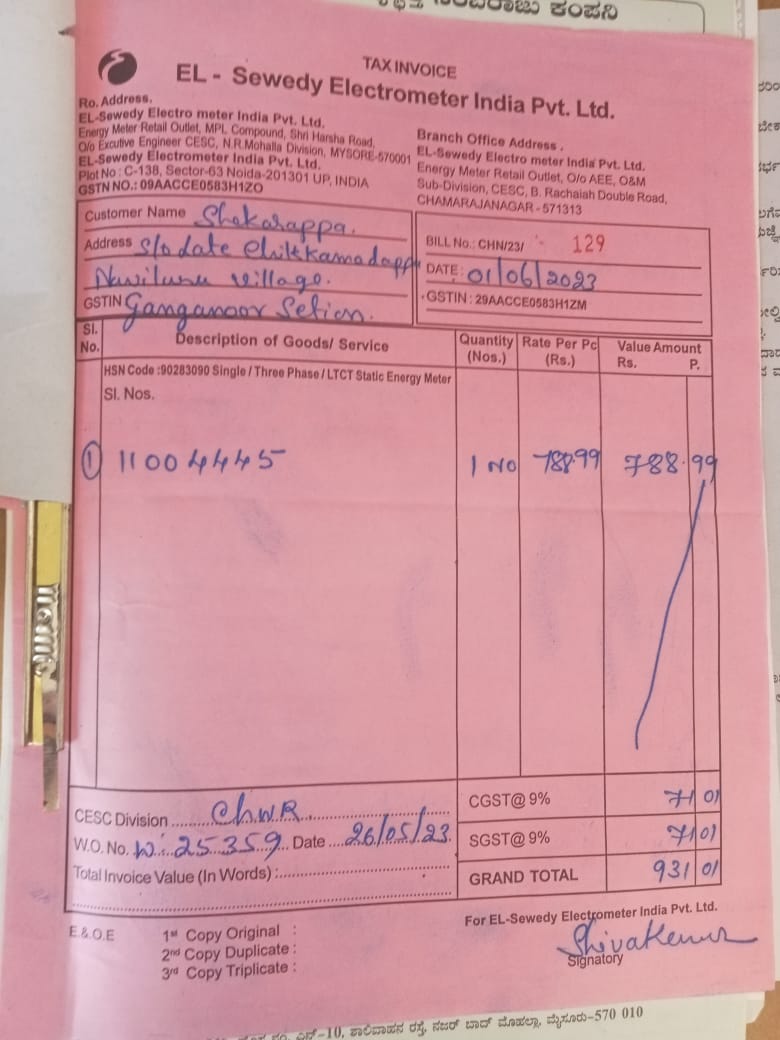 ಕಂಪನಿ
TAX INVOICE
EL - Sewedy Electrometer India Pvt. Ltd.
Ro. Address.
EL-Sewedy Electro meter India Pvt. Ltd.
Energy Meter Retail Outlet, MPL Compound, Shri Harsha Road,
O/o Excutive Engineer CESC, N.R.Mohalla Division, MYSORE-570001
EL-Sewedy Electrometer India Pvt. Ltd.
Plot No : C-138, Sector-63 Noida-201301 UP, INDIA
GSTN NO.: 09AACCE0583H1ZO
Branch Office Address .
EL-Sewedy Electro meter India Pvt. Ltd.
Energy Meter Retail Outlet, O/o AEE, O&M
Sub-Division, CESC, B. Rachaiah Double Road,
CHAMARAJANAGAR - 571313
Customer Name Shekarappa.
Address S/o date Chikkamadapp
Naviluru Village.
GSTIN Ganganoor Setion.
BILL No.: CHN/23/ 129
DATE : 01/06/2023
GSTIN : 29AACCE0583H1ZM
Sl. No. Description of Goods/ Service Quantity (Nos.) Rate Per Pc (Rs.) Value Amount Rs. P.
HSN Code :90283090 Single / Three Phase / LTCT Static Energy Meter
Sl. Nos.
1 11004445 1 No 788.99 788.99
CESC Division ChWR
W.O. No. W: 25359 Date 26/05/23
Total Invoice Value (In Words) :
CGST@ 9% 71 01
SGST@ 9% 71 01
GRAND TOTAL 931 01
For EL-Sewedy Electrometer India Pvt. Ltd.
Shivakumar
Signatory
E.& O.E
1st Copy Original :
2nd Copy Duplicate :
3rd Copy Triplicate :
ಎನ್-10, ಶಾಲಿವಾಹನ ರಸ್ತೆ, ನಜರ್ ಬಾದ್ ಮೊಹಲ್ಲಾ, ಮೈಸೂರು-570 010